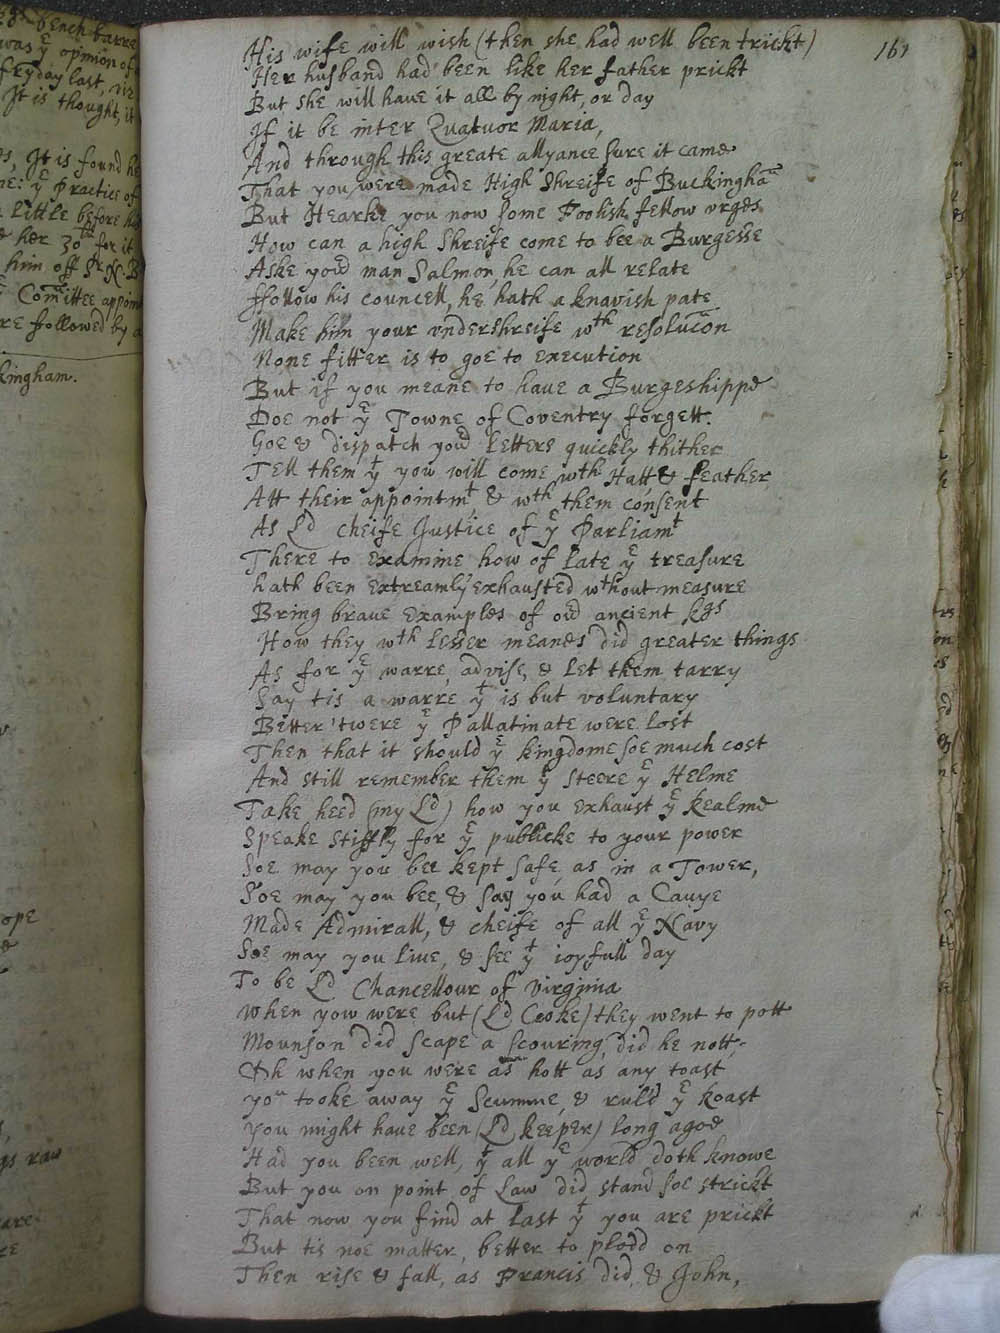 bench barre
was yᵉ opinion of
fryday last, viz
It is thought, it
It is found he
ne: yᵉ Practice of
little before his
her 30ᵗʰ for it
him off Sʳ N. B
Comittee appoint
re followed by a
kingham.
ope
gs raw
are
re
161
His wife will wish (then she had well been trickt)
Her husband had been like her father prickt
But she will have it all by night, or day
If it be inter Quatuor Maria,
And through this greate allyance sure it came
That you were made High Shreife of Buckinghā
But Hearke you now some Foolish fellow vrges
How can a high Shreife come to bee a Burgesse
Aske yoʳ man Salmon, he can all relate
ffollow his councell, he hath a knavish pate
Make him your vndershreife wᵗʰ resolūcon
None fitter is to goe to execution
But if you meane to have a Burgeshippe
Doe not yᵉ Towne of Coventry forgett.
Goe & dispatch yoʳ Letters quickly thither
Tell them yᵗ you will come wᵗʰ Hatt & feather
Att their appointmᵗ & wᵗʰ them consent
As Ld cheife Justice of yᵉ Parliamᵗ
There to examine how of late yᵉ treasure
hath been extreamly exhausted wᵗhout measure
Bring braue examples of oʳ ancient kgs
How they wᵗʰ lesser meanes did greater things
As for yᵉ warre, advise, & let them tarry
Say tis a warre yᵗ is but voluntary
Better 'twere yᵉ Pallatinate were lost
Then that it should yᵉ kingdome soe much cost
And still remember them yᵗ steere yᵉ Helme
Take heed (my Ld) how you exhaust yᵉ Realme
Speake stiffly for yᵉ publicke to your power
Soe may you bee kept safe, as in a Tower,
Soe may you bee, & say you had a Cauye
Made Admirall, & cheife of all yᵉ Navy
Soe may you liue, & see yᵗ ioyfull day
To be Ld Chancellour of Virginia
When yow were but (Ld Cooke) they went to pott
Mounson did scape a scouring, did he nott,
Oh when you were as hott as any toast
yoᵘ tooke away yᵉ Scumme, & ruld yᵉ Roast
You might have been (Ld keeper) long agoe
Had you been well, yᵗ all yᵉ world doth knowe
But you on point of Law did stand soe strickt
That now you find at last yᵗ you are prickt
But tis noe matter, better to plodd on
Then rise & fall, as Francis did, & John,